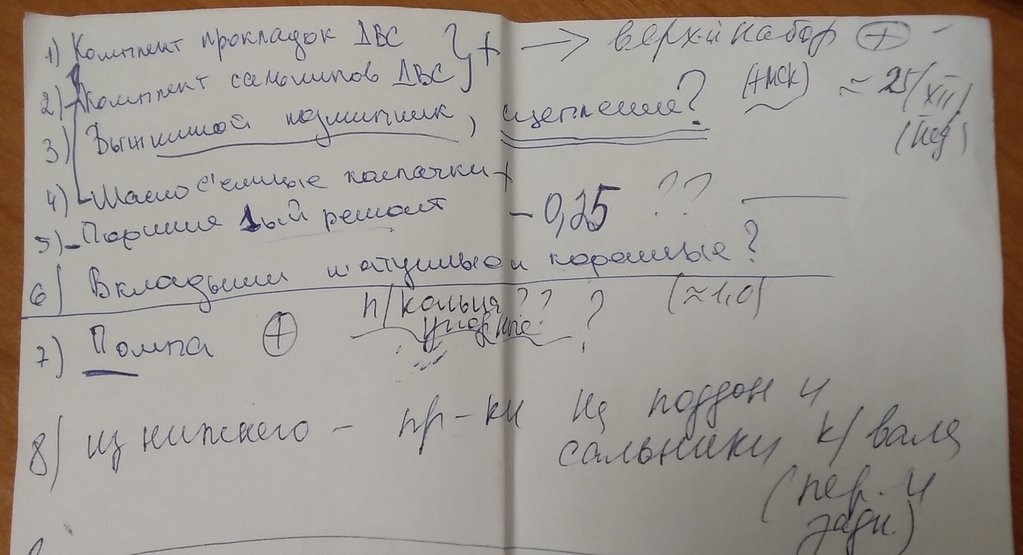 1) Комплект прокладок ДВС } + → верхй набор (+) –
2) Комплект сальников ДВС
(+МСК) ≈ 25/XII/
3) Выжимной подшипник, сцепление?
(Пед)
4) Маслосъемные колпачки +
5) – Поршня 1ый ремонт – 0,25 ??
6) Вкладыши шатунные и коренные?
7) Помпа (+) п/кольца ?? ? (≈1,0)
8) из нижнего – пр-ки на поддон и
сальники к/вала
(пер. и
задн.)